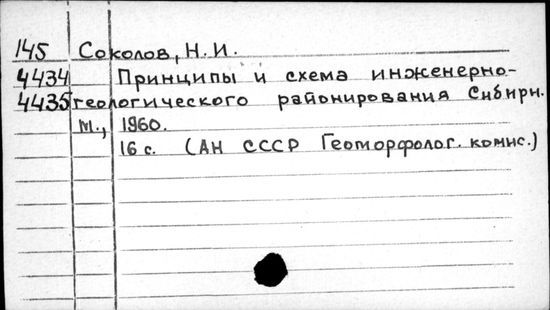 145 Соколов, Н. И.
4434 Принципы и схема инженерно-
4435 геологического районирования Сибири.
М., 1960.
16 с. (АН СССР Геоморфолог. комис.)